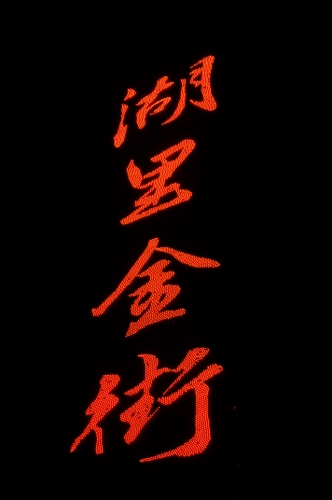 湖里金街